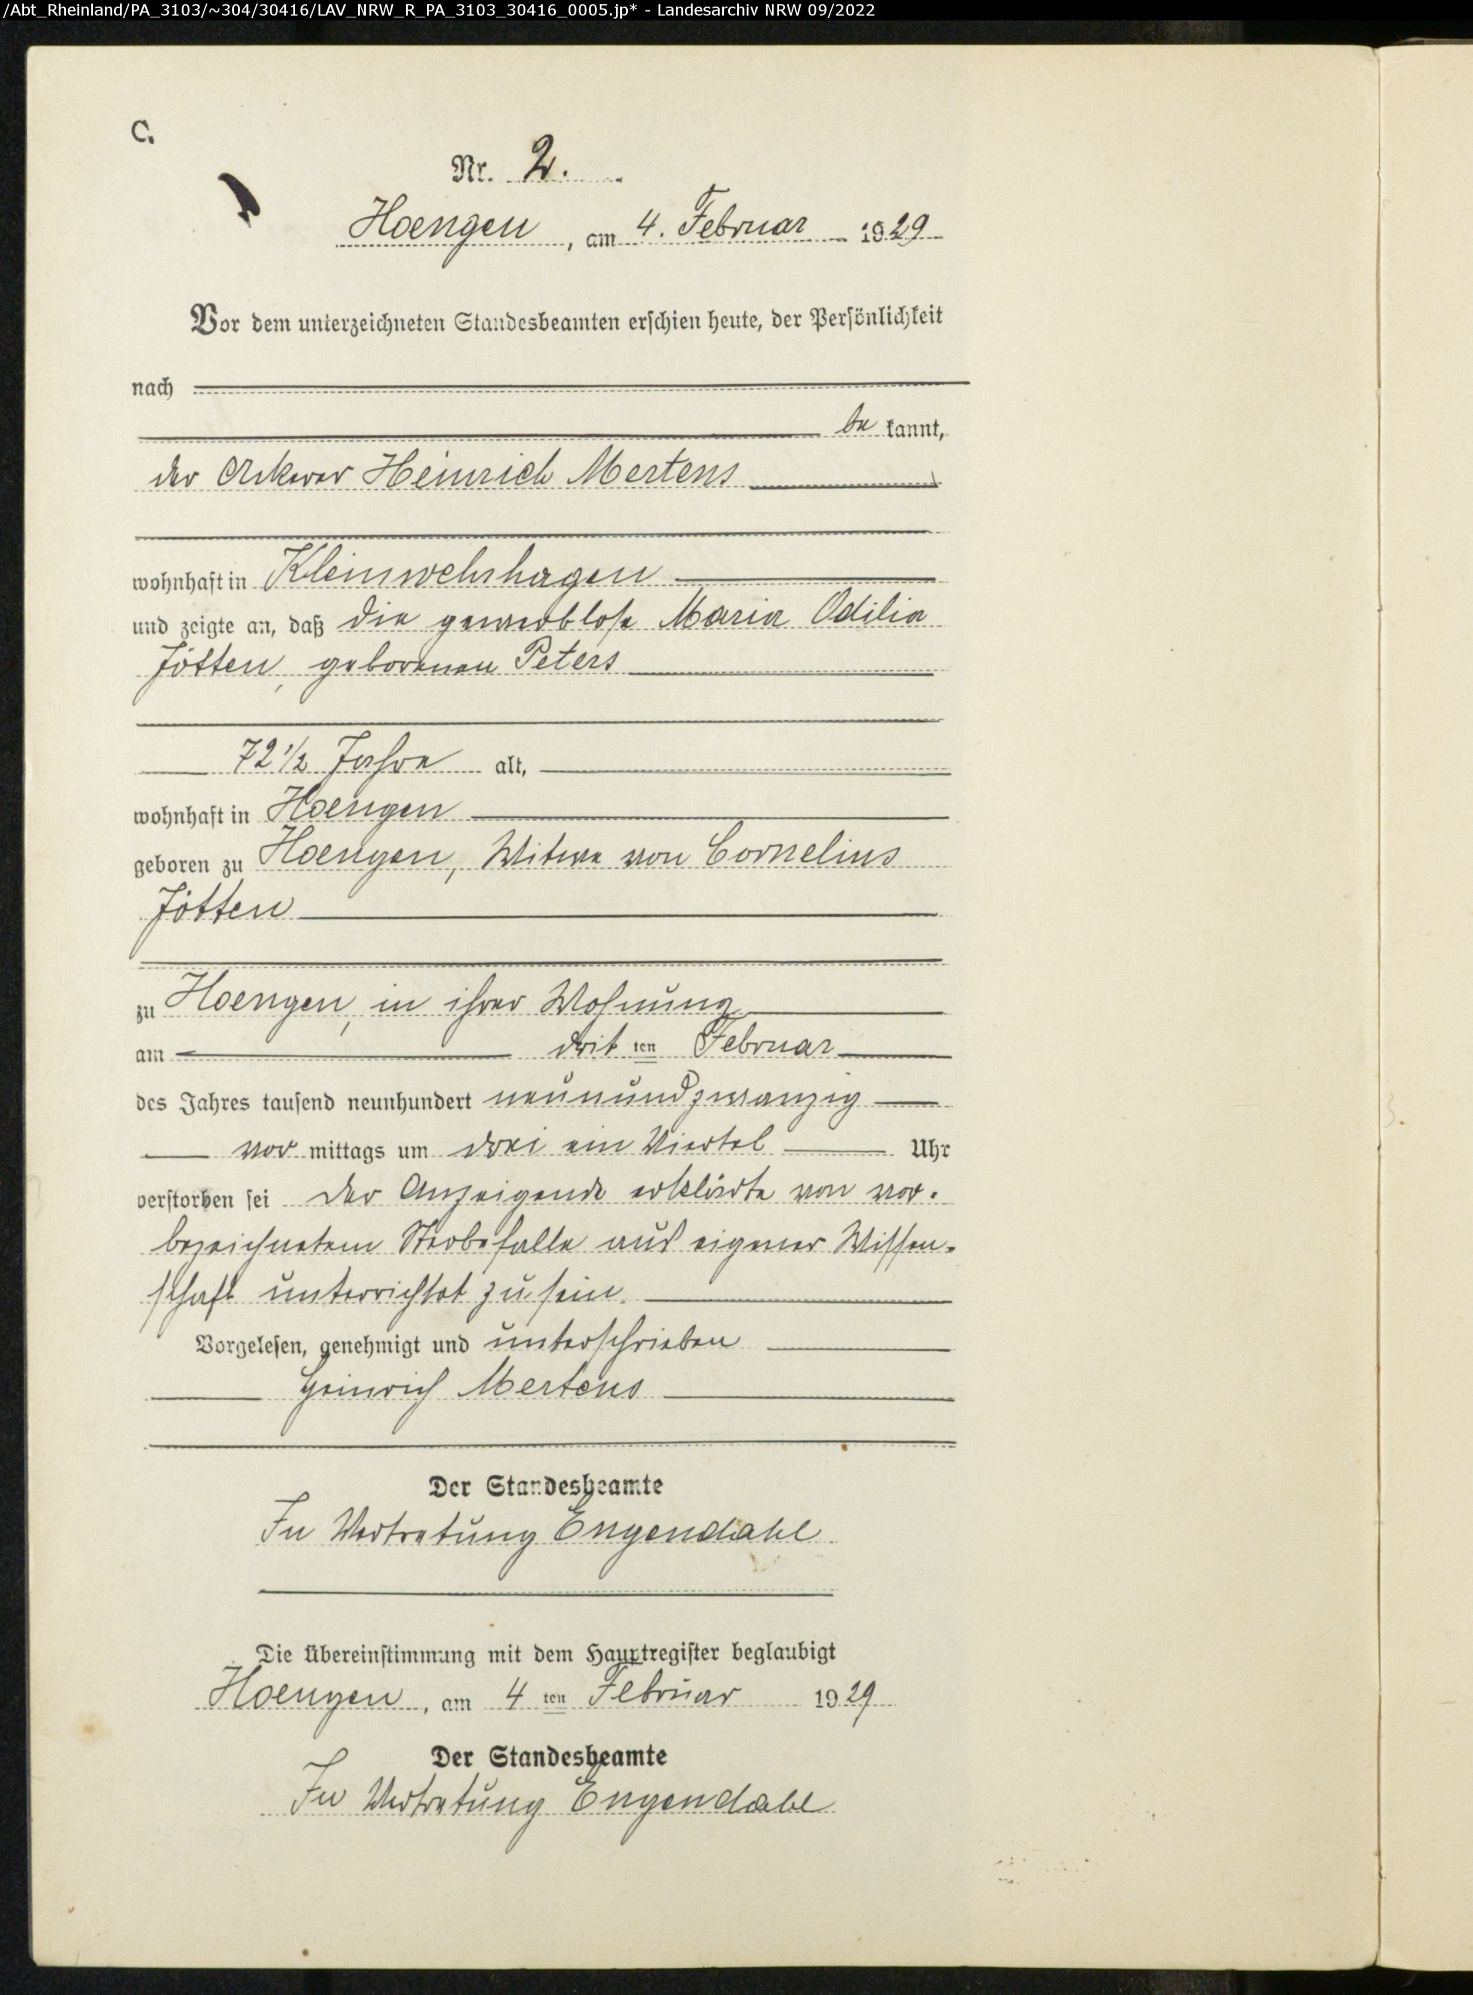 /Abt_Rheinland/PA_3103/~304/30416/LAV_NRW_R_PA_3103_30416_0005.jp* - Landesarchiv NRW 09/2022
C.
Nr. 2.
Hoengen, am 4. Februar 1929
Vor dem unterzeichneten Standesbeamten erschien heute, der Persönlichkeit
nach
be kannt,
der Ackerer Heinrich Mertens
wohnhaft in Kleinwehrhagen
und zeigte an, daß die gewerblose Maria Odilia
Jötten, geborenen Peters
72 1/2 Jahre alt,
wohnhaft in Hoengen
geboren zu Hoengen, Witwe von Cornelius
Jötten
zu Hoengen, in ihrer Wohnung
am drit ten Februar
des Jahres tausend neunhundert neunundzwanzig
vor mittags um drei ein Viertel Uhr
verstorben sei der Anzeigende erklärte von vor-
bezeichnetem Sterbefalle aus eigener Wissen-
schaft unterrichtet zu sein.
Vorgelesen, genehmigt und unterschrieben
Heinrich Mertens
Der Standesbeamte
In Vertretung Engendahl
Die Übereinstimmung mit dem Hauptregister beglaubigt
Hoengen, am 4 ten Februar 1929
Der Standesbeamte
In Vertretung Engendahl